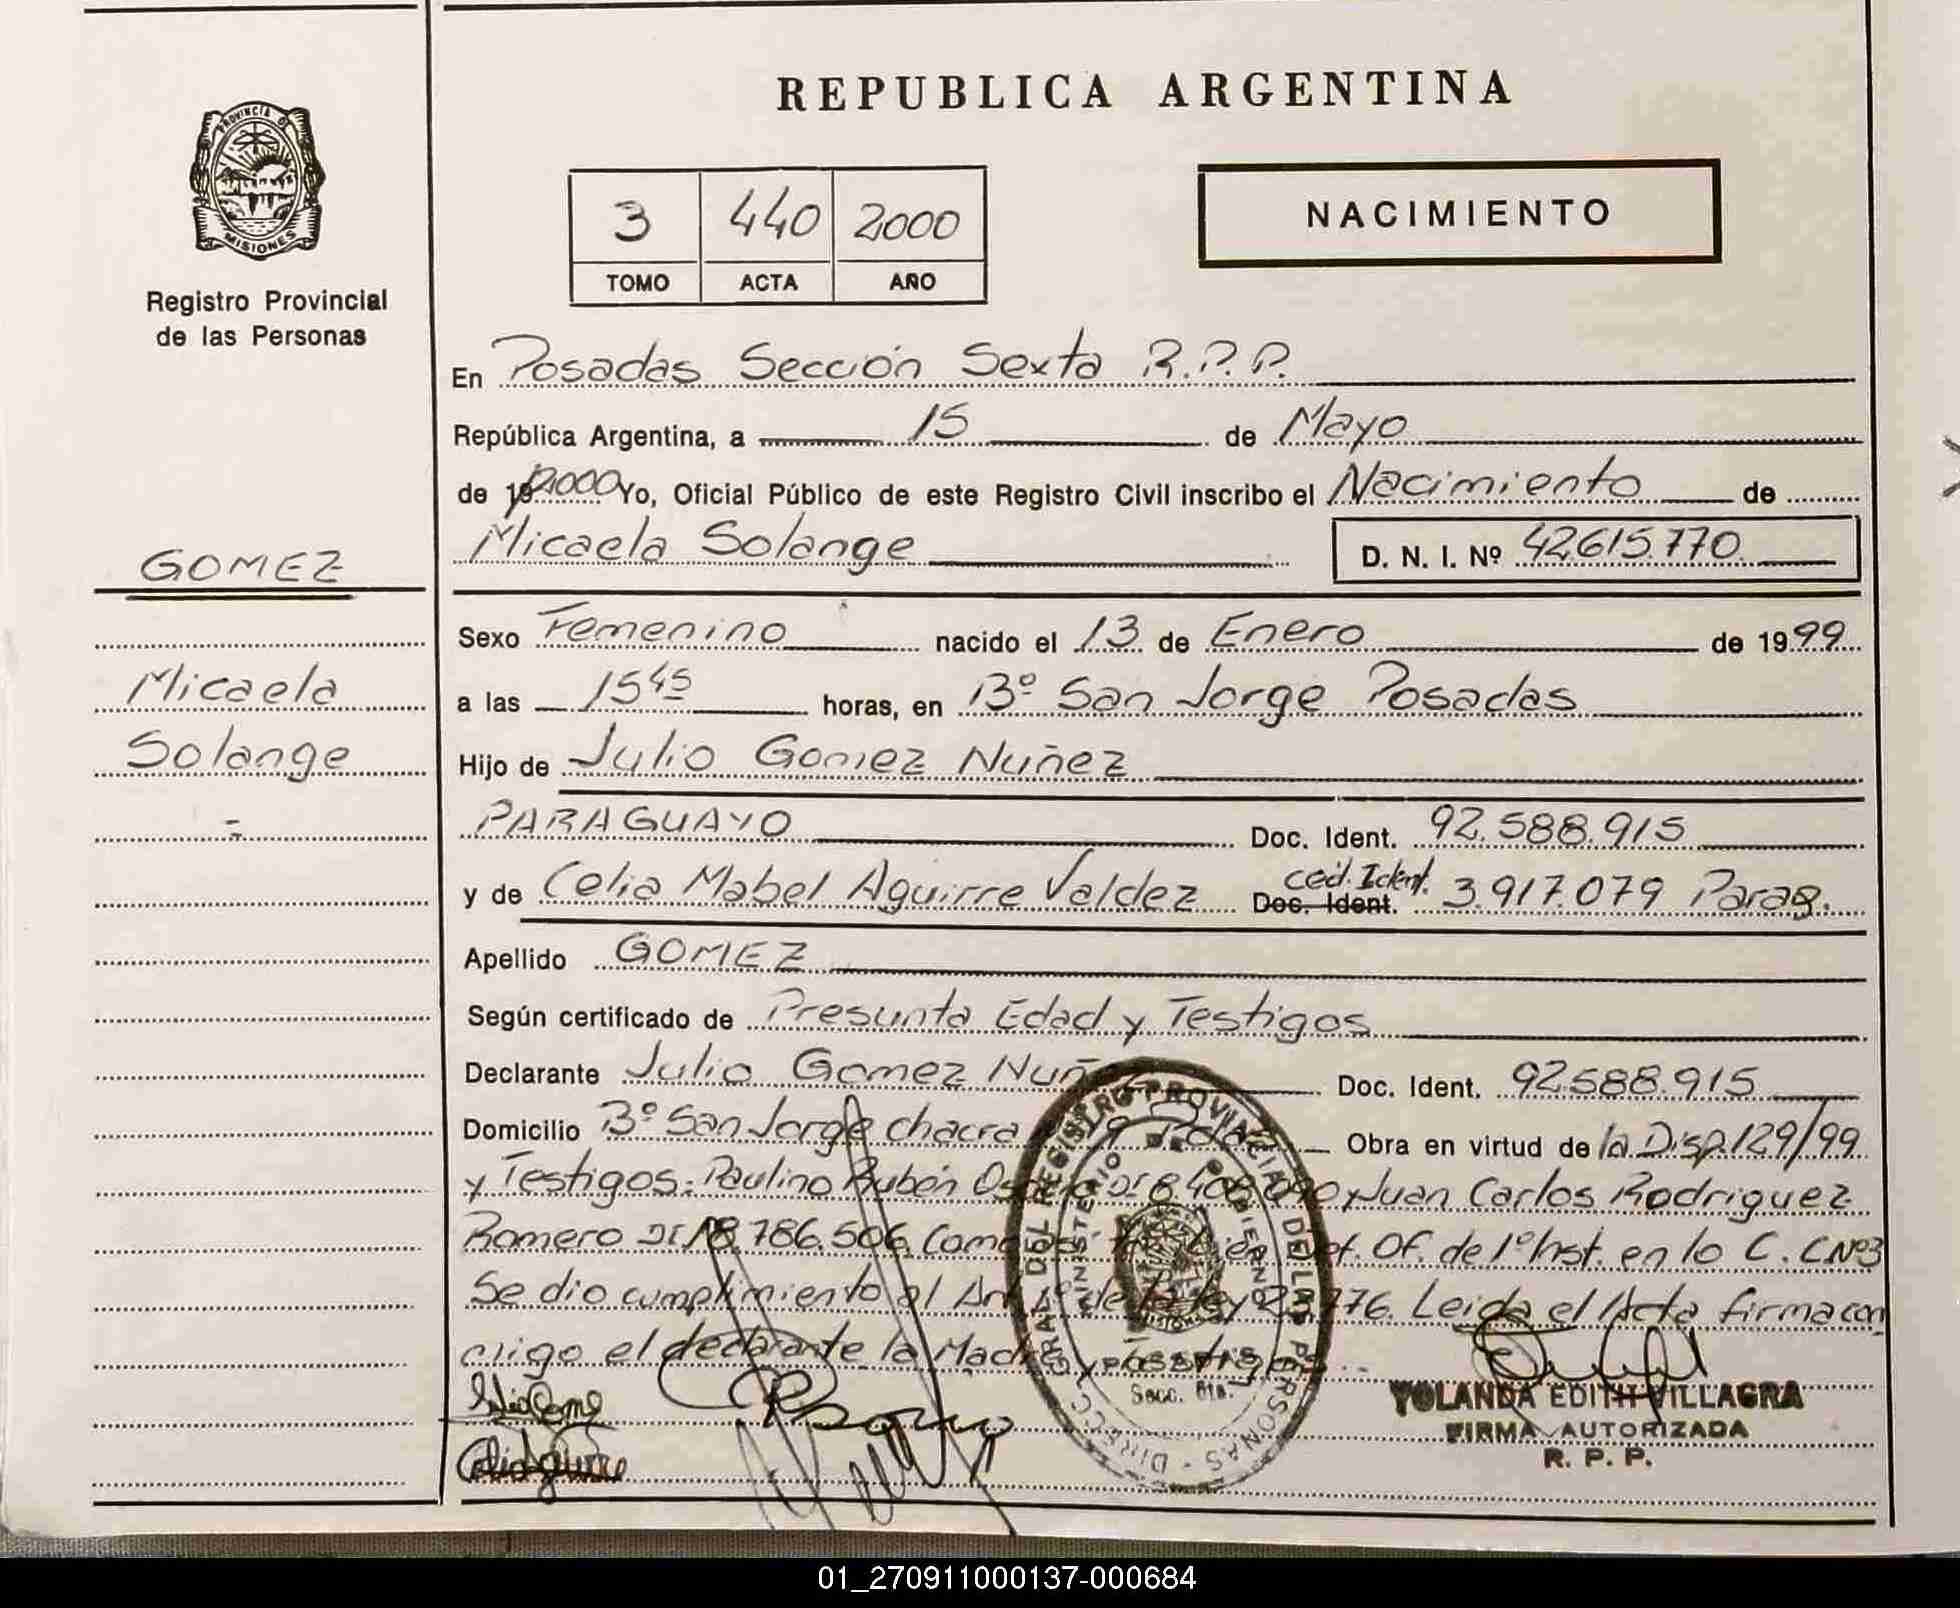 REPUBLICA ARGENTINA
PROVINCIA DE
MISIONES
Registro Provincial
de las Personas
3 440 2000
TOMO ACTA AÑO
NACIMIENTO
En Posadas Sección Sexta R.P.P.
República Argentina, a 15 de Mayo
de 19 2000 Yo, Oficial Público de este Registro Civil inscribo el Nacimiento de
Micaela Solange D. N. I. Nº 42615.770
GOMEZ
Micaela
Solange
Sexo Femenino nacido el 13 de Enero de 1999
a las 15 45 horas, en Bº San Jorge Posadas
Hijo de Julio Gomez Nuñez
PARAGUAYO Doc. Ident. 92.588.915
y de Celia Mabel Aguirre Valdez Doc. Ident. ced. Ident. 3.917.079 Parag.
Apellido GOMEZ
Según certificado de Presunta Edad y Testigos
Declarante Julio Gomez Nuñez Doc. Ident. 92.588.915
Domicilio Bº San Jorge chacra Obra en virtud de la Disp. 129/99
y Testigos: Paulino Rubén y Juan Carlos Rodriguez
Romero DI 18.786.506 Def. Of. de 1º Inst. en lo C. C Nº3
Se dio cumplimiento al Art. de la ley Leida el Acta firma con
migo el declarante la Madre y testigos.
DIRECC. GRAL. DEL REGISTRO PROVINCIAL DE LAS PERSONAS
MINISTERIO DE GOBIERNO
MISIONES
POSADAS
Secc. 6ta.
YOLANDA EDITH VILLAGRA
FIRMA AUTORIZADA
R. P. P.
01_270911000137-000684